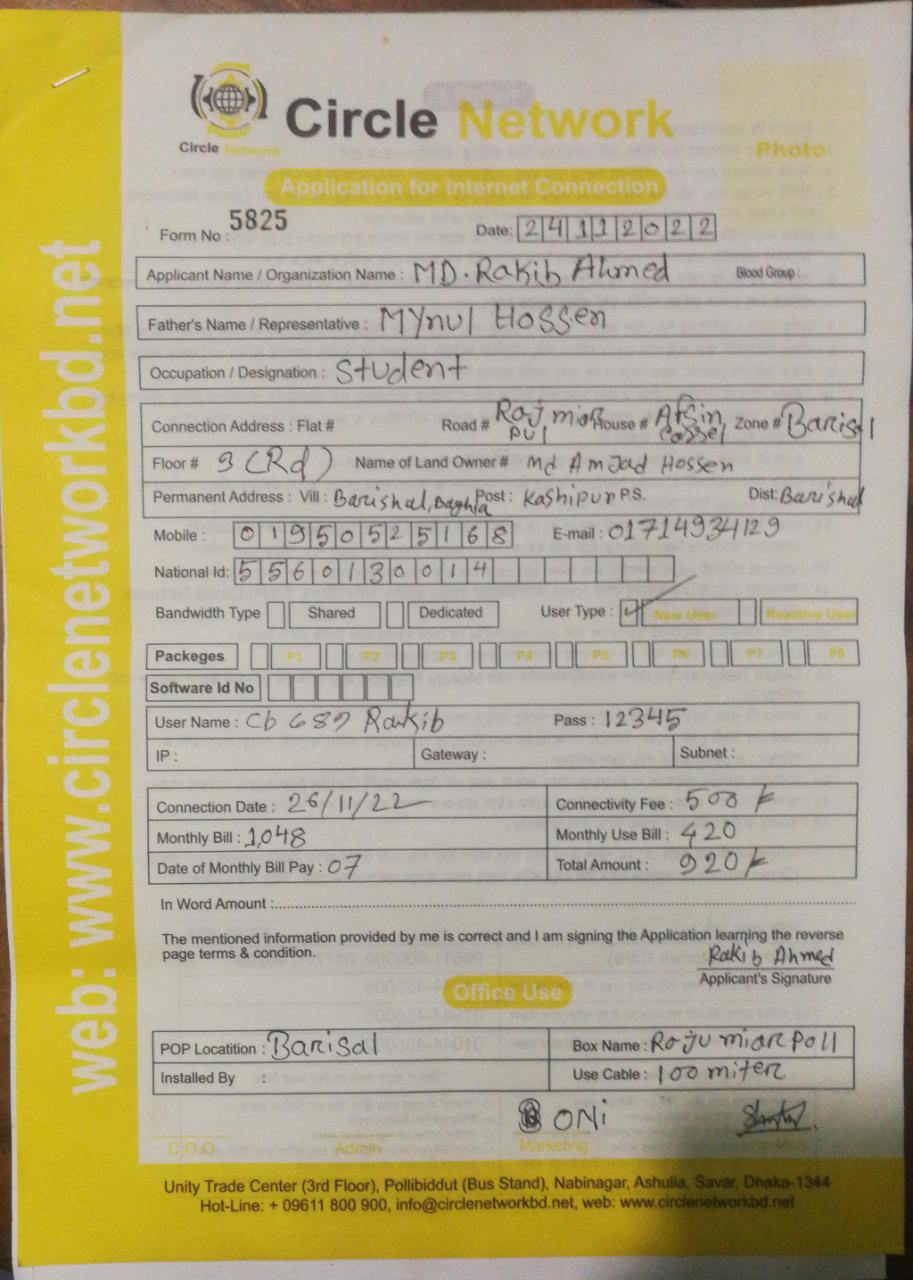 Circle Network
Circle Network
Photo
Application for Internet Connection
Form No : 5825
Date: 24112022
Applicant Name / Organization Name : MD. Rakib Ahmed Blood Group :
Father's Name / Representative : Mynul Hossen
Occupation / Designation : Student
Connection Address : Flat # Road # Raj miar Pul House # Afsin Zone # Barisal
Floor # 3 (Rd) Name of Land Owner # Md Amjad Hossen
Permanent Address : Vill : Barishal, Baghia Post : Kashipur P.S. Dist: Barishal
Mobile : 01950525168 E-mail : 01714934129
National Id: 5560130014
Bandwidth Type Shared Dedicated User Type : New User Reactive User
Packeges P1 P2 P3 P4 P5 P6 P7 P8
Software Id No
User Name : Cb 687 Rakib Pass : 12345
IP : Gateway : Subnet :
Connection Date : 26/11/22 Connectivity Fee : 500
Monthly Bill : 1,048 Monthly Use Bill : 420
Date of Monthly Bill Pay : 07 Total Amount : 920
In Word Amount :
The mentioned information provided by me is correct and I am signing the Application learning the reverse
page terms & condition.
Rakib Ahmed
Applicant's Signature
Office Use
POP Locatition : Barisal Box Name : Raju miar Poll
Installed By : Use Cable : 100 miter
ONi
C.O.O Admin Marketing
Unity Trade Center (3rd Floor), Pollibiddut (Bus Stand), Nabinagar, Ashulia, Savar, Dhaka-1344
Hot-Line: + 09611 800 900, info@circlenetworkbd.net, web: www.circlenetworkbd.net
web: www.circlenetworkbd.net